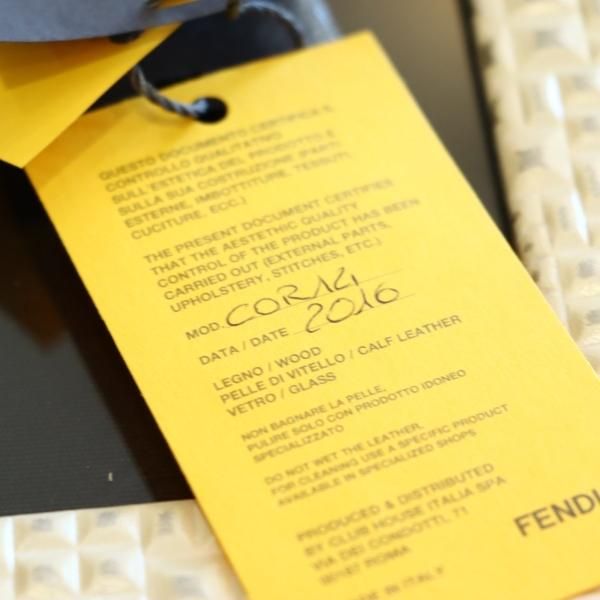 QUESTO DOCUMENTO CERTIFICA IL
CONTROLLO QUALITATIVO
SULL'ESTETICA DEL PRODOTTO E
SULLA SUA COSTRUZIONE (PARTI
ESTERNE, IMBOTTITURE, TESSUTI,
CUCITURE, ECC.)
THE PRESENT DOCUMENT CERTIFIES
THAT THE AESTETHIC QUALITY
CONTROL OF THE PRODUCT HAS BEEN
CARRIED OUT (EXTERNAL PARTS,
UPHOLSTERY, STITCHES, ETC.)
MOD. COR14
DATA / DATE 2016
LEGNO / WOOD
PELLE DI VITELLO / CALF LEATHER
VETRO / GLASS
NON BAGNARE LA PELLE,
PULIRE SOLO CON PRODOTTO IDONEO
SPECIALIZZATO
DO NOT WET THE LEATHER,
FOR CLEANING USE A SPECIFIC PRODUCT
AVAILABLE IN SPECIALIZED SHOPS
PRODUCED & DISTRIBUTED
BY CLUB HOUSE ITALIA SPA
VIA DEI CONDOTTI, 71
00187 ROMA
MADE IN ITALY
FENDI